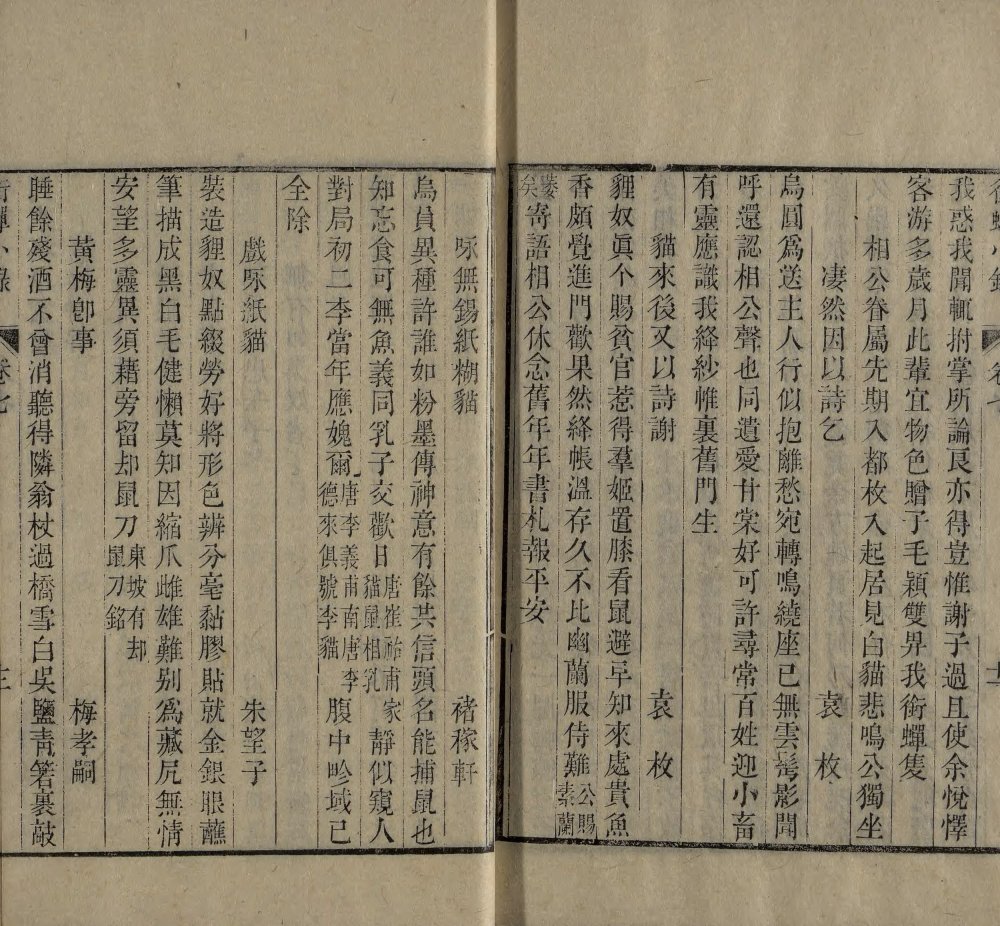 我惑我聞輒拊掌所論良亦得豈惟謝子過且使余悅懌
客游多歲月此輩宜物色贈子毛穎雙畀我銜蟬隻
相公眷屬先期入都枚入起居見白貓悲鳴公獨坐
凄然因以詩乞 袁枚
烏圓爲送主人行似抱離愁宛轉鳴繞座已無雲髩影聞
呼還認相公聲也同遺愛甘棠好可許尋常百姓迎小畜
有靈應識我絳紗帷裏舊門生
貓來後又以詩謝 袁枚
貍奴眞个賜貧官惹得羣姬置膝看鼠避早知來處貴魚
香頗覺進門歡果然絳帳溫存久不比幽蘭服侍難公賜素蘭
萎矣寄語相公休念舊年年書札報平安
咏無錫紙糊貓 褚稼軒
烏員異種許誰如粉墨傳神意有餘共信頭名能捕鼠也
知忘食可無魚義同乳子交歡日唐崔祐甫家貓鼠相乳靜似窺人
對局初二李當年應媿爾唐李義甫南唐李德來俱號李貓腹中畛域已
全除
戲咏紙貓 朱望子
裝造貍奴點綴勞好將形色辨分毫黏膠貼就金銀眼蘸
筆描成黑白毛健懶莫知因縮爪雌雄難别爲藏尻無情
安望多靈異須藉旁留却鼠刀東坡有却鼠刀銘
黃梅卽事 梅孝嗣
睡餘殘酒不曾消聽得隣翁杖過橋雪白吳鹽靑箸裹敲
卷七